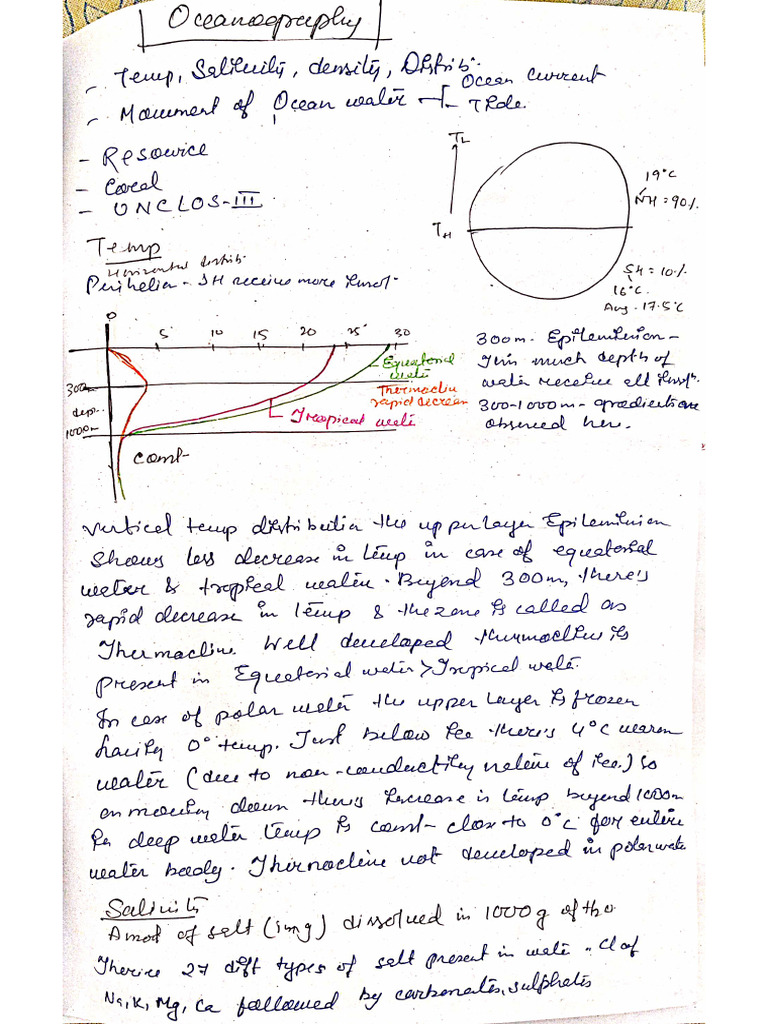 Oceanography
- Temp, Salinity, density, Distrib.
- Movement of Ocean water - Ocean Current
- Tide.
- Resource
- Coral
- UNCLOS-III
TL
TH
19°C
NH = 90%
SH = 10%
16°C.
Avg. 17.5°C
Temp
Horizontal distrib.
Perihelion - SH receive more Insol.
0
5 10 15 20 25 30
300m
dep.
1000m
Equatorial water
Thermocline rapid decrease
Tropical water
Const
300m. Epileminion -
This much depth of
water receive all Insoln.
300-1000m- gradient are
observed here.
Vertical temp distribution the upper layer Epileminion
shows less decrease in temp in case of equatorial
water & tropical water. Beyond 300m, there's
rapid decrease in temp & the zone is called as
Thermocline. Well developed thermocline is
present in Equatorial water > Tropical water.
In case of polar water the upper layer is frozen
having 0° temp. Just below Ice there's 4°C warm
water (due to non-conductivity nature of Ice.) so
on moving down there's increase in temp beyond 1000m
in deep water temp is const- close to 0°C for entire
water body. Thermocline not developed in polar water
Salinity
Amot of salt (img) dissolved in 1000g of H2O
There're 27 difft types of salt present in water. Cl of
Na, K, Mg, Ca followed by carbonates, sulphates